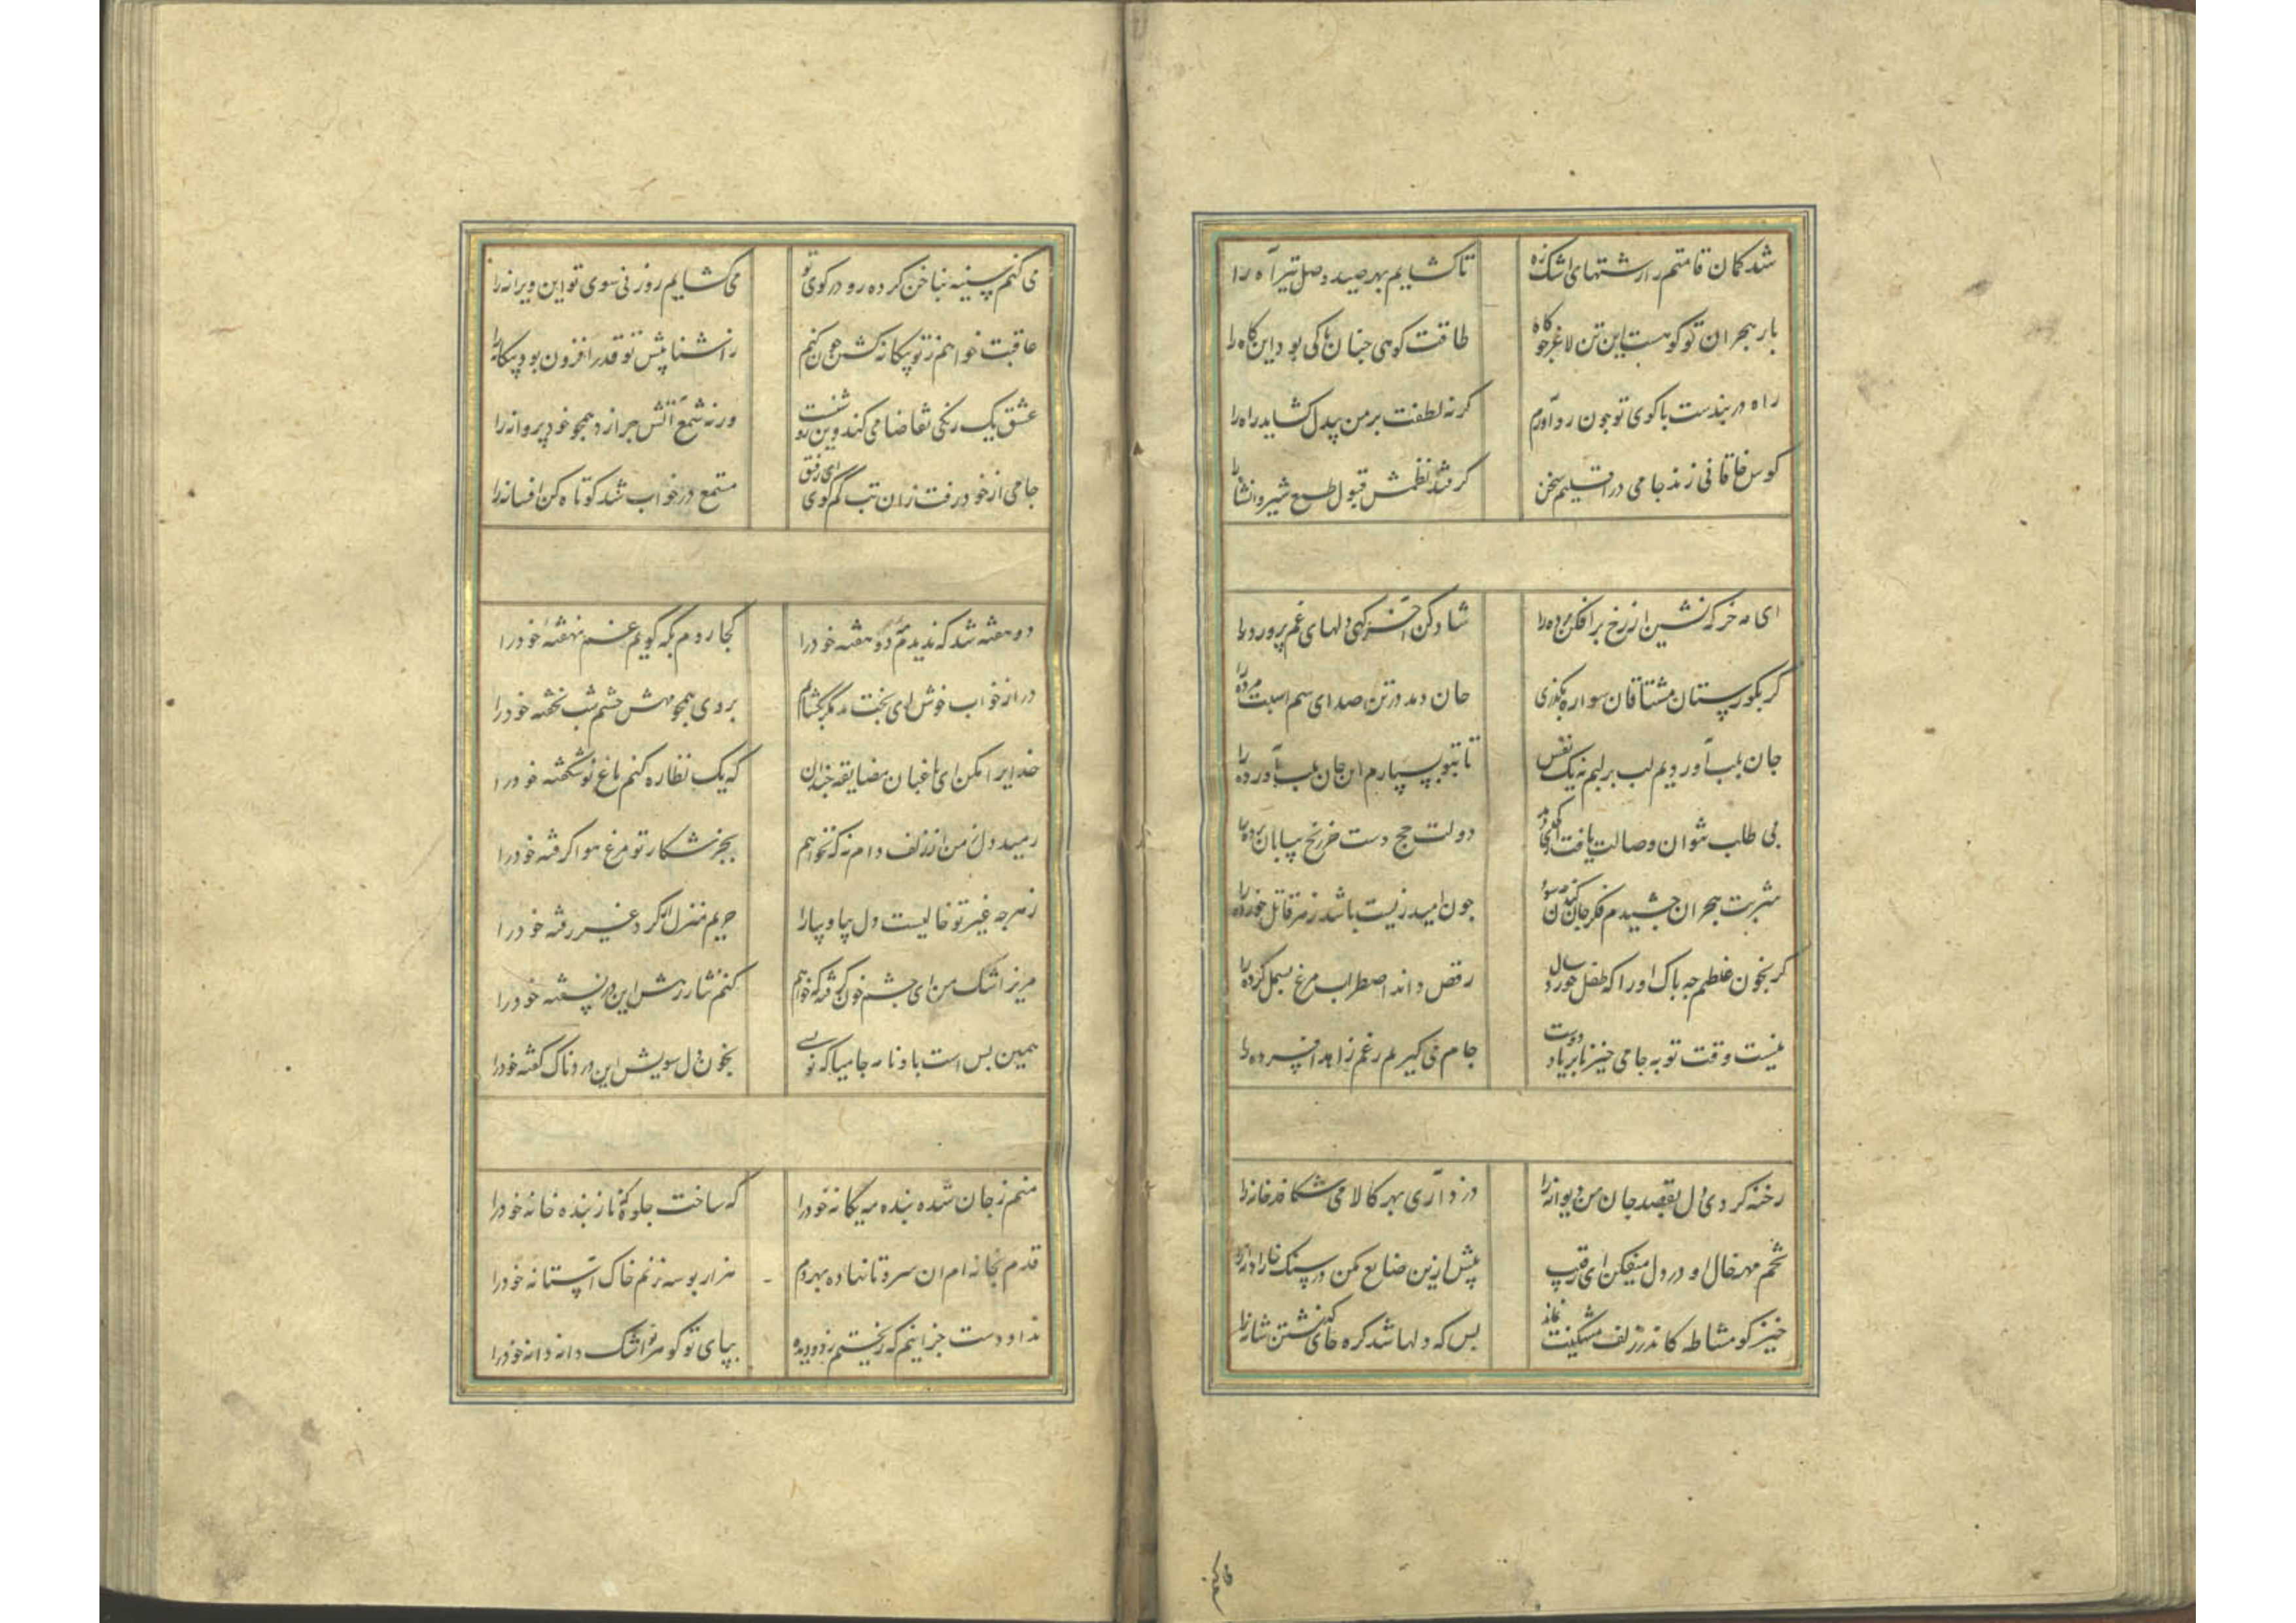 شد کمان قامتم از رشتهای اشک زه
تا کشایم بهر صید وصل تیر آه را
بار هجران تو کوهست این تن لاغر چو کاه
طاقت کوهی چنان کی بود این کاه را
راه دربندست با کوی تو چون رو آورم
کر نه لطفت بر من بیدل کشاید راه را
کوس خاقانی زند جامی در اقلیم سخن
کر فتد نظمش قبول طبع شیروانشاه را
ای مه خرکه نشین از رخ برافکن پرده را
شاد کن آخر کهی دلهای غم پرورده را
کر بکورستان مشتاقان سواره بکذری
جان دمد در تن صدای سم اسبت مرده را
جان بلب آوردیم لب بر لبم نه یک نفس
تا بتو بسپارم این جان بلب آورده را
بی طلب نتوان وصالت یافت آری کی دهد
دولت حج دست جز رنج بیابان برده را
شربت هجران چشیدم فکر جان کندن چه سود
چون امید زیست باشد زهر قاتل خورده را
کر بخون غلطم چه باک او را که طفل خورد سال
رقص داند اضطراب مرغ بسمل کرده را
نیست وقت توبه جامی خیز تا بر یاد دوست
جام می کیریم رغم زاهد افسرده را
رخنه کردی دل بقصد جان من دیوانه را
دزد آری بهر کالا می شکافد خانه را
تخم مهر خال او در دل میفکن ای رقیب
بیش ازین ضایع مکن در سنک خارا دانه را
خیز کو مشاطه کاندر زلف مشکینت نماند
بس که دلها شد کره جای کذشتن شانه را
می کنم سینه بناخن کرده رو در کوی تو
می کشایم روزنی سوی تو این ویرانه را
عاقبت خواهم ز تو بیکانه کشتن چون کنم
ز آشنا پیش تو قدر افزون بود بیکانه را
عشق یک رنکی تقاضا می کند وین تو
ورنه شمع آتش چرا زد همچو خود پروانه را
جامی از خود رفت زان تب کم کوی ای رفیق
مستمع در خواب شد کوتاه کن افسانه را
دو هفته شد که ندیدم مه دو هفته خود را
کجا روم بکه کویم غم نهفته خود را
درآ ز خواب خوش ای بخت بد مکر بکشایم
بروی همچو مهش چشم شب نخفته خود را
خدایرا مکن ای باغبان مضایقه چندان
که یک نظاره کنم باغ نو شکفته خود را
رمید دل ز من از زلف دام نه که نخواهم
بجز شکار تو مرغ هوا کرفته خود را
ز هرچه غیر تو خالیست دل بیا و بیارا
حریم منزل از کرد غیر رفته خود را
مریز اشک من ای چشم خون کرفته که خواهم
کنم نثار رهش این در نسفته خود را
همین بس است بادنامه جامیا که نویسی
بخون دل سویش این دردناک کفته خود را
منم ز جان شده بنده مه یکانه خود را
که ساخت جلوه که ناز بنده خانه خود را
قدم بخانه ام آن سرو تا نهاده بهر دم
هزار بوسه زنم خاک آستانه خود را
نداد دست جز اینم که ریختم ز دو دیده
بپای تو کوهر اشک دانه دانه خود را